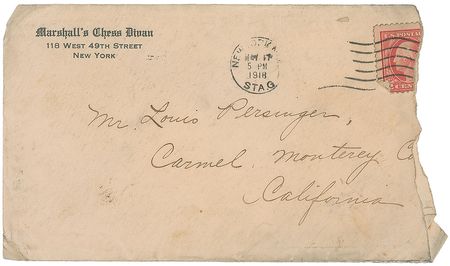 Marshall's Chess Divan
118 WEST 49TH STREET
NEW YORK
NEW YORK, N.
5 PM
1918
STA G
U.S. POSTAG
2 CENT
Mr. Louis Persinger,
Carmel, Monterey Co
California